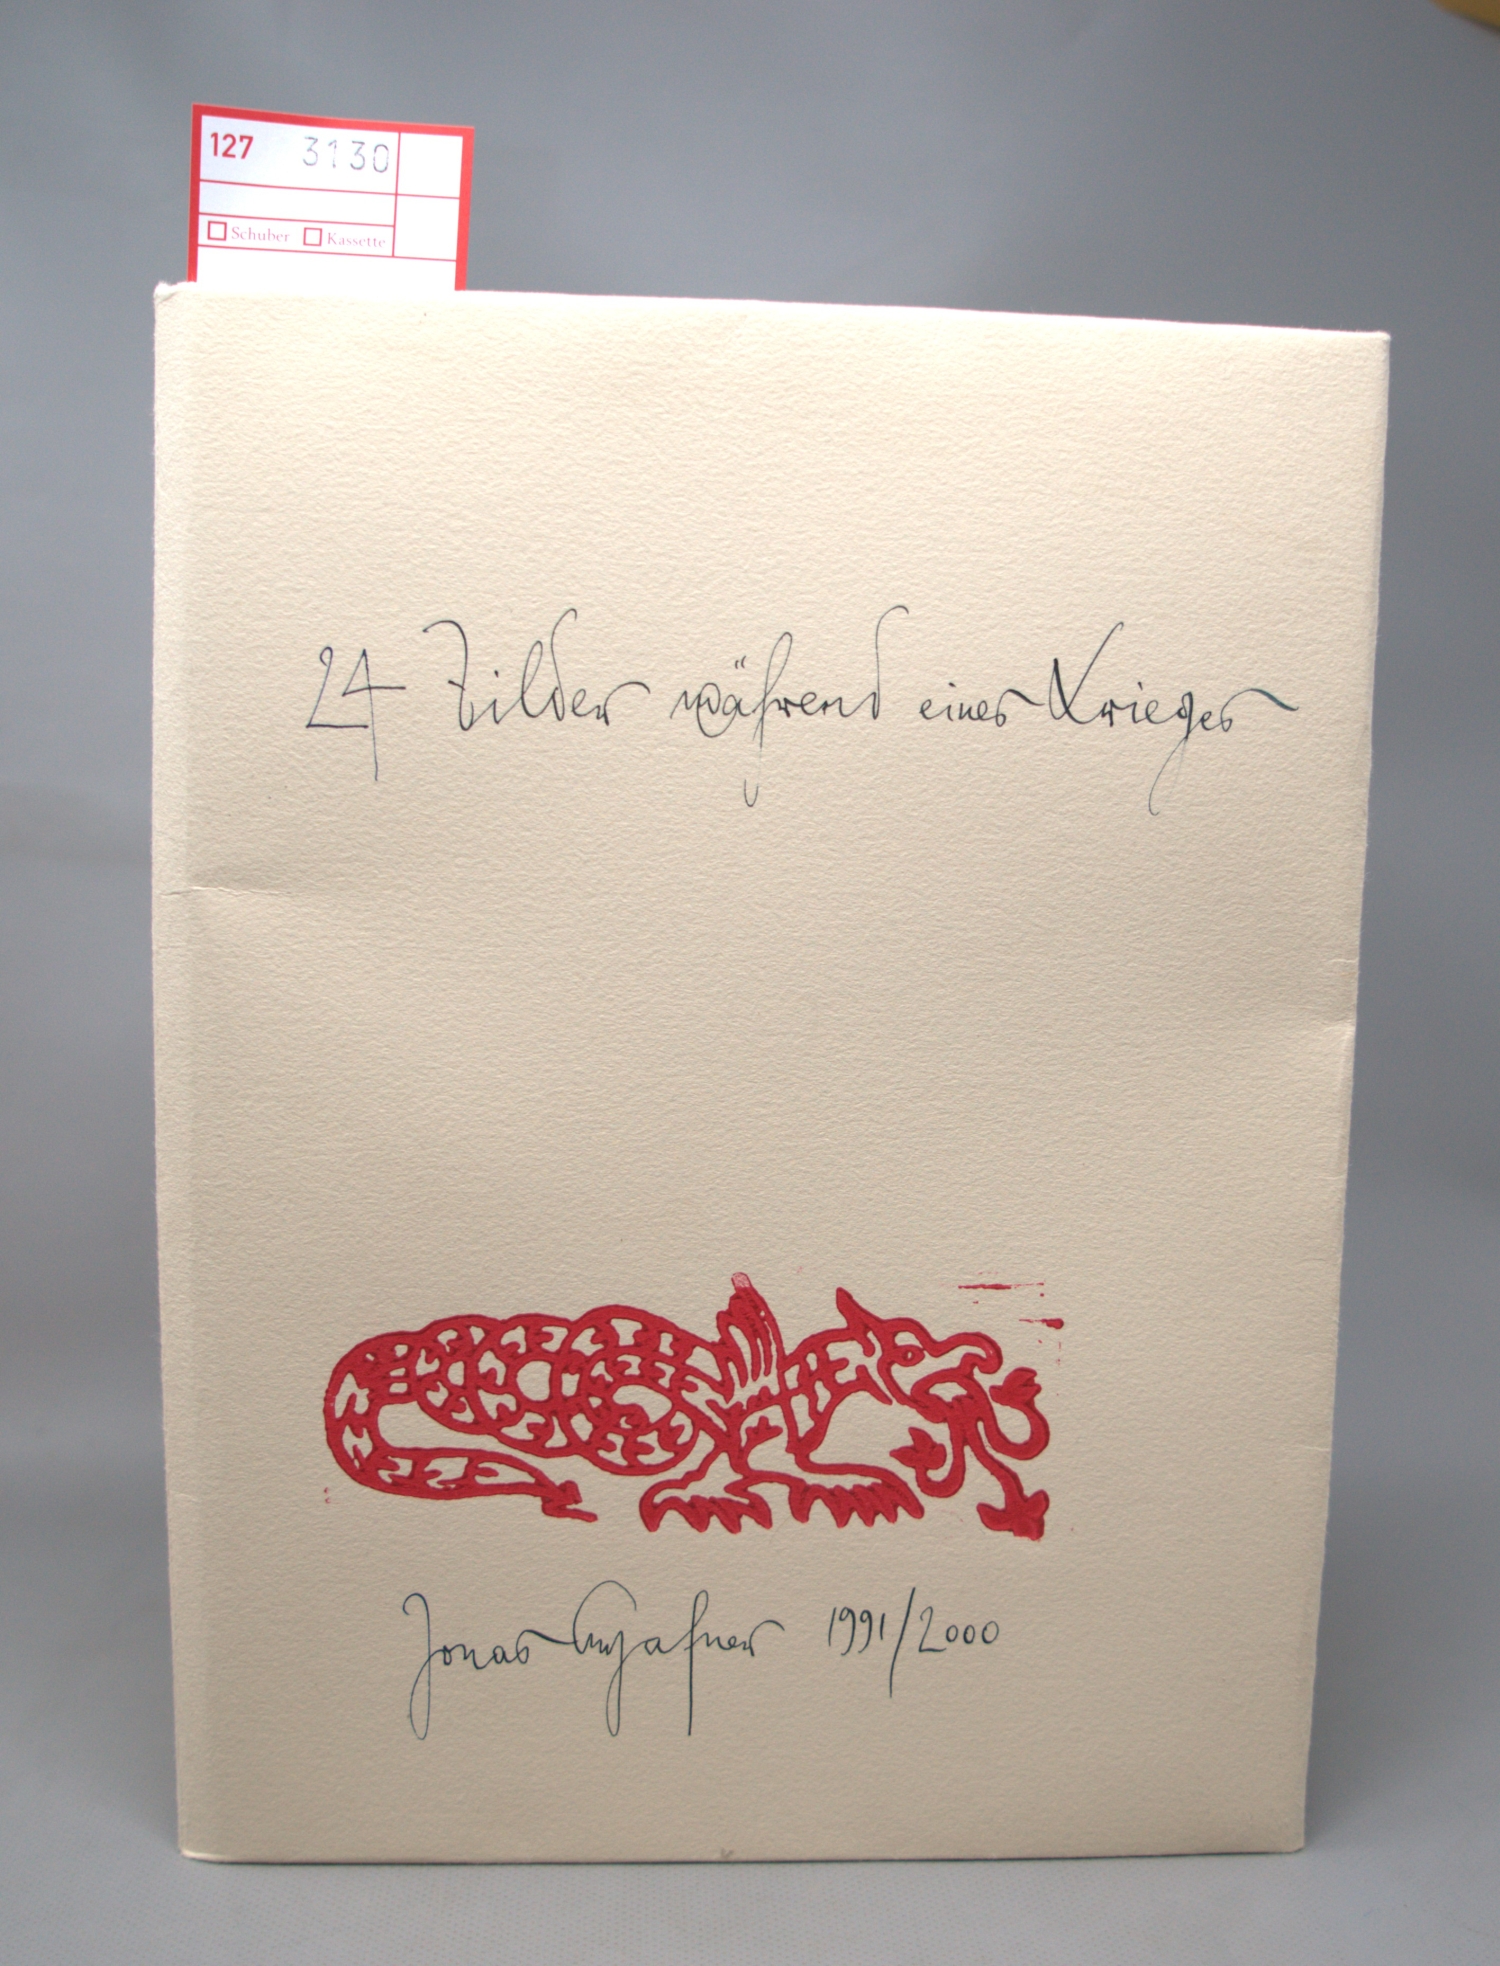 127 3130
Schuber Kassette
24 Bilder während eines Krieges
Jonas Hafner 1991/2000